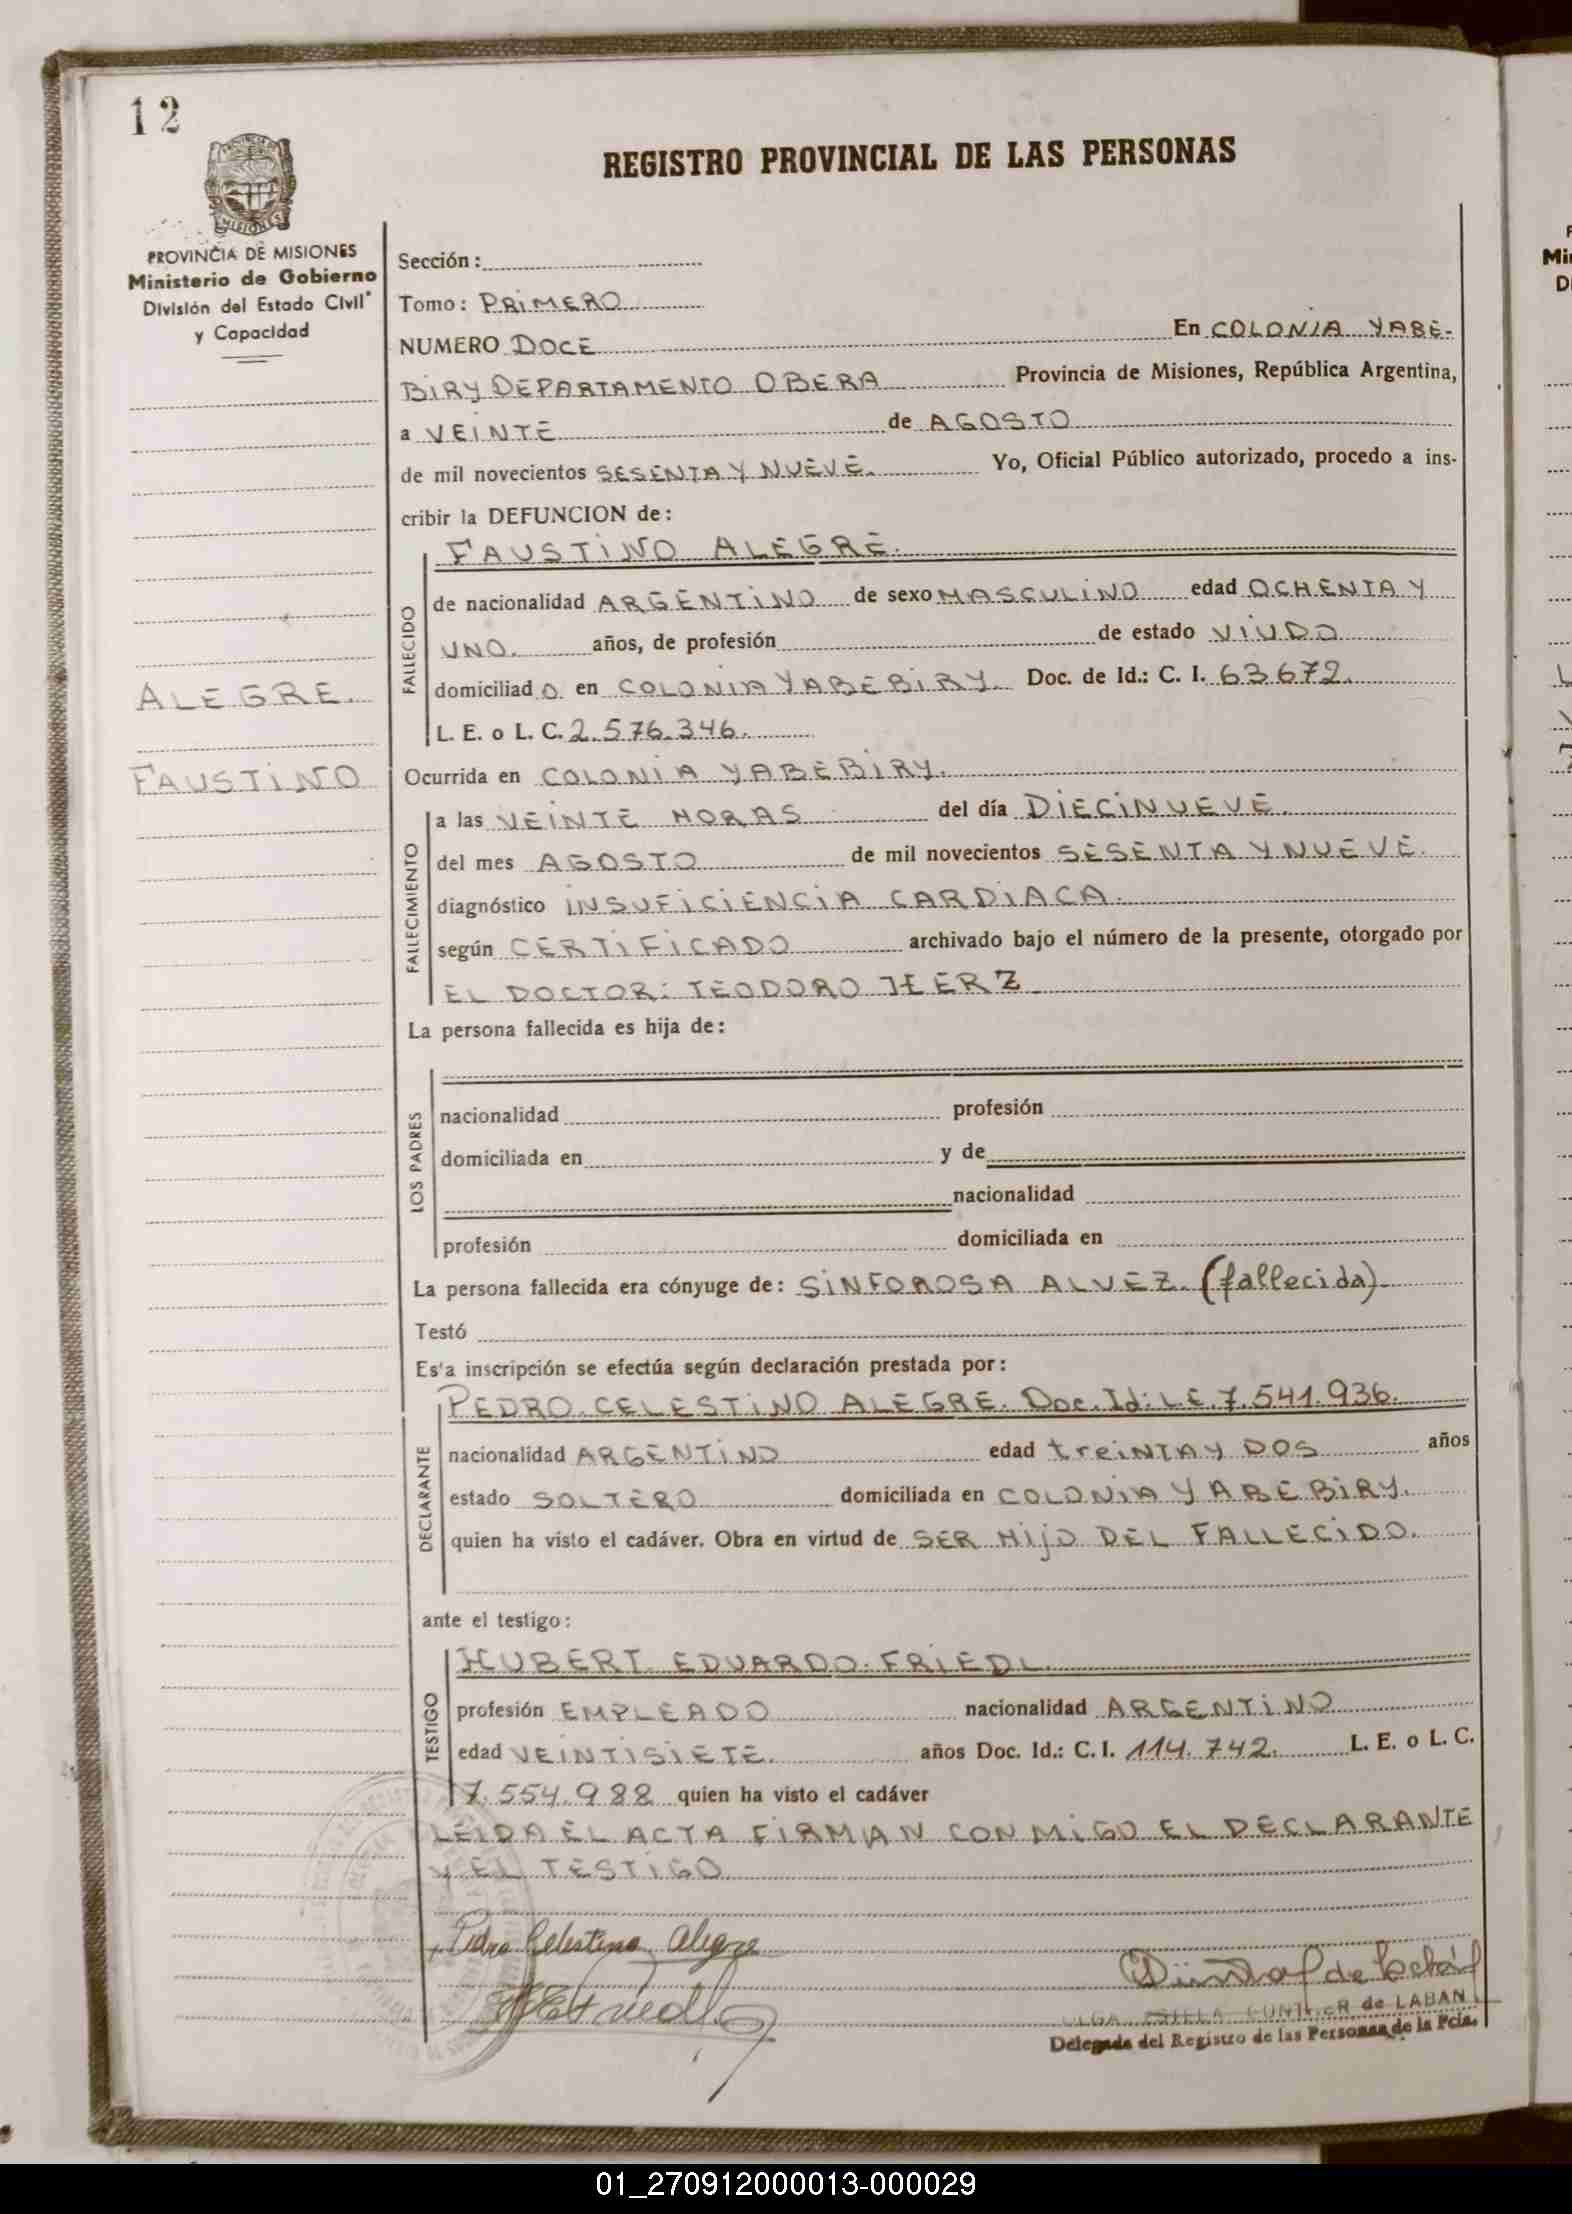 12
REGISTRO PROVINCIAL DE LAS PERSONAS
PROVINCIA DE MISIONES
Ministerio de Gobierno
División del Estado Civil
y Capacidad
ALEGRE.
FAUSTINO
Sección:
Tomo: PRIMERO
NUMERO DOCE En COLONIA YABE-
BIRY DEPARTAMENTO OBERA Provincia de Misiones, República Argentina,
a VEINTE de AGOSTO
de mil novecientos SESENTA Y NUEVE. Yo, Oficial Público autorizado, procedo a ins-
cribir la DEFUNCION de:
FALLECIDO
FAUSTINO ALEGRE.
de nacionalidad ARGENTINO de sexo MASCULINO edad OCHENTA Y
UNO. años, de profesión de estado VIUDO
domiciliad O en COLONIA YABEBIRY. Doc. de Id.: C. I. 63672.
L. E. o L. C. 2.576.346.
Ocurrida en COLONIA YABEBIRY.
FALLECIMIENTO
a las VEINTE HORAS del día DIECINUEVE.
del mes AGOSTO de mil novecientos SESENTA Y NUEVE.
diagnóstico INSUFICIENCIA CARDIACA.
según CERTIFICADO archivado bajo el número de la presente, otorgado por
EL DOCTOR: TEODORO HERZ
La persona fallecida es hija de:
LOS PADRES
nacionalidad profesión
domiciliada en y de
nacionalidad
profesión domiciliada en
La persona fallecida era cónyuge de: SINFOROSA ALVEZ. (fallecida)
Testó
Es'a inscripción se efectúa según declaración prestada por:
DECLARANTE
PEDRO CELESTINO ALEGRE. Doc. Id: L.E. 7.541.936.
nacionalidad ARGENTINO edad treINTA Y DOS años
estado SOLTERO domiciliada en COLONIA YABEBIRY.
quien ha visto el cadáver. Obra en virtud de SER HIJO DEL FALLECIDO.
ante el testigo:
TESTIGO
HUBERT EDUARDO FRIEDL
profesión EMPLEADO nacionalidad ARGENTINO
edad VEINTISIETE. años Doc. Id.: C. I. 114.742. L. E. o L. C.
7.554.988 quien ha visto el cadáver
LEIDA EL ACTA FIRMAN CONMIGO EL DECLARANTE
Y EL TESTIGO
Pedro Celestino Alegre
de LABAN
Delegada del Registro de las Personas de la Pcia.
01_270912000013-000029